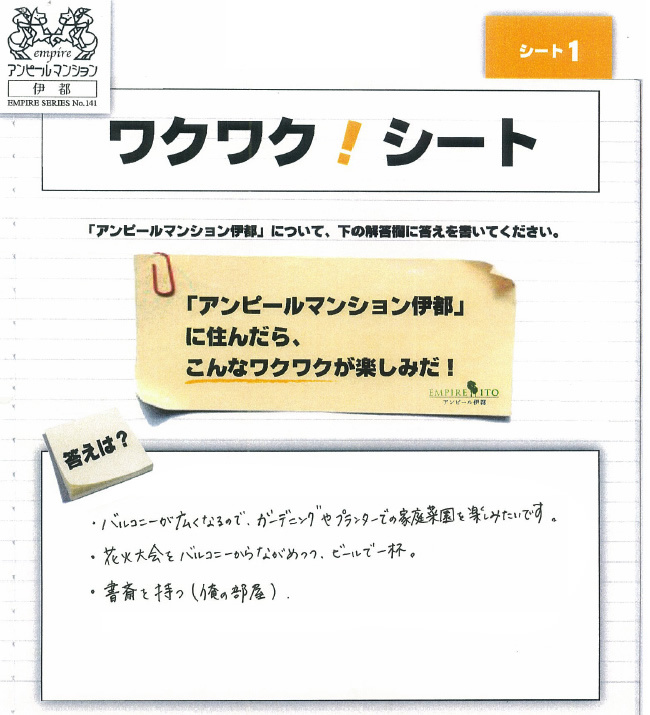 empire
アンピールマンション
伊都
EMPIRE SERIES No.141
シート1
ワクワク!シート
「アンピールマンション伊都」について、下の解答欄に答えを書いてください。
「アンピールマンション伊都」
に住んだら、
こんなワクワクが楽しみだ！
EMPIRE ITO
アンピール伊都
答えは？
・バルコニーが広くなるので、ガーデニングやプランターでの家庭菜園を楽しみたいです。
・花火大会をバルコニーからながめつつ、ビールで一杯。
・書斎を持つ(俺の部屋).